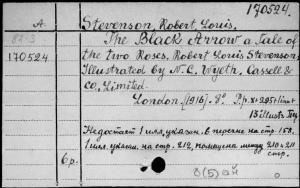 170524.
A. Stevenson, Robert Louis.
The Black Arrow a Tale of
170524 the two Roses. Robert Louis Stevenson
Illustrated by N. C. Wyeth. Cassell &
Co, Limited
London. [1916]. 8° P.p. x+295+
13 illustr.
Недостает 1 илл., указан. в перечне на стр. 158.
1 илл. указан. на стр. 212, помещена между 210 и 211
6р. стр.
8(5) ай